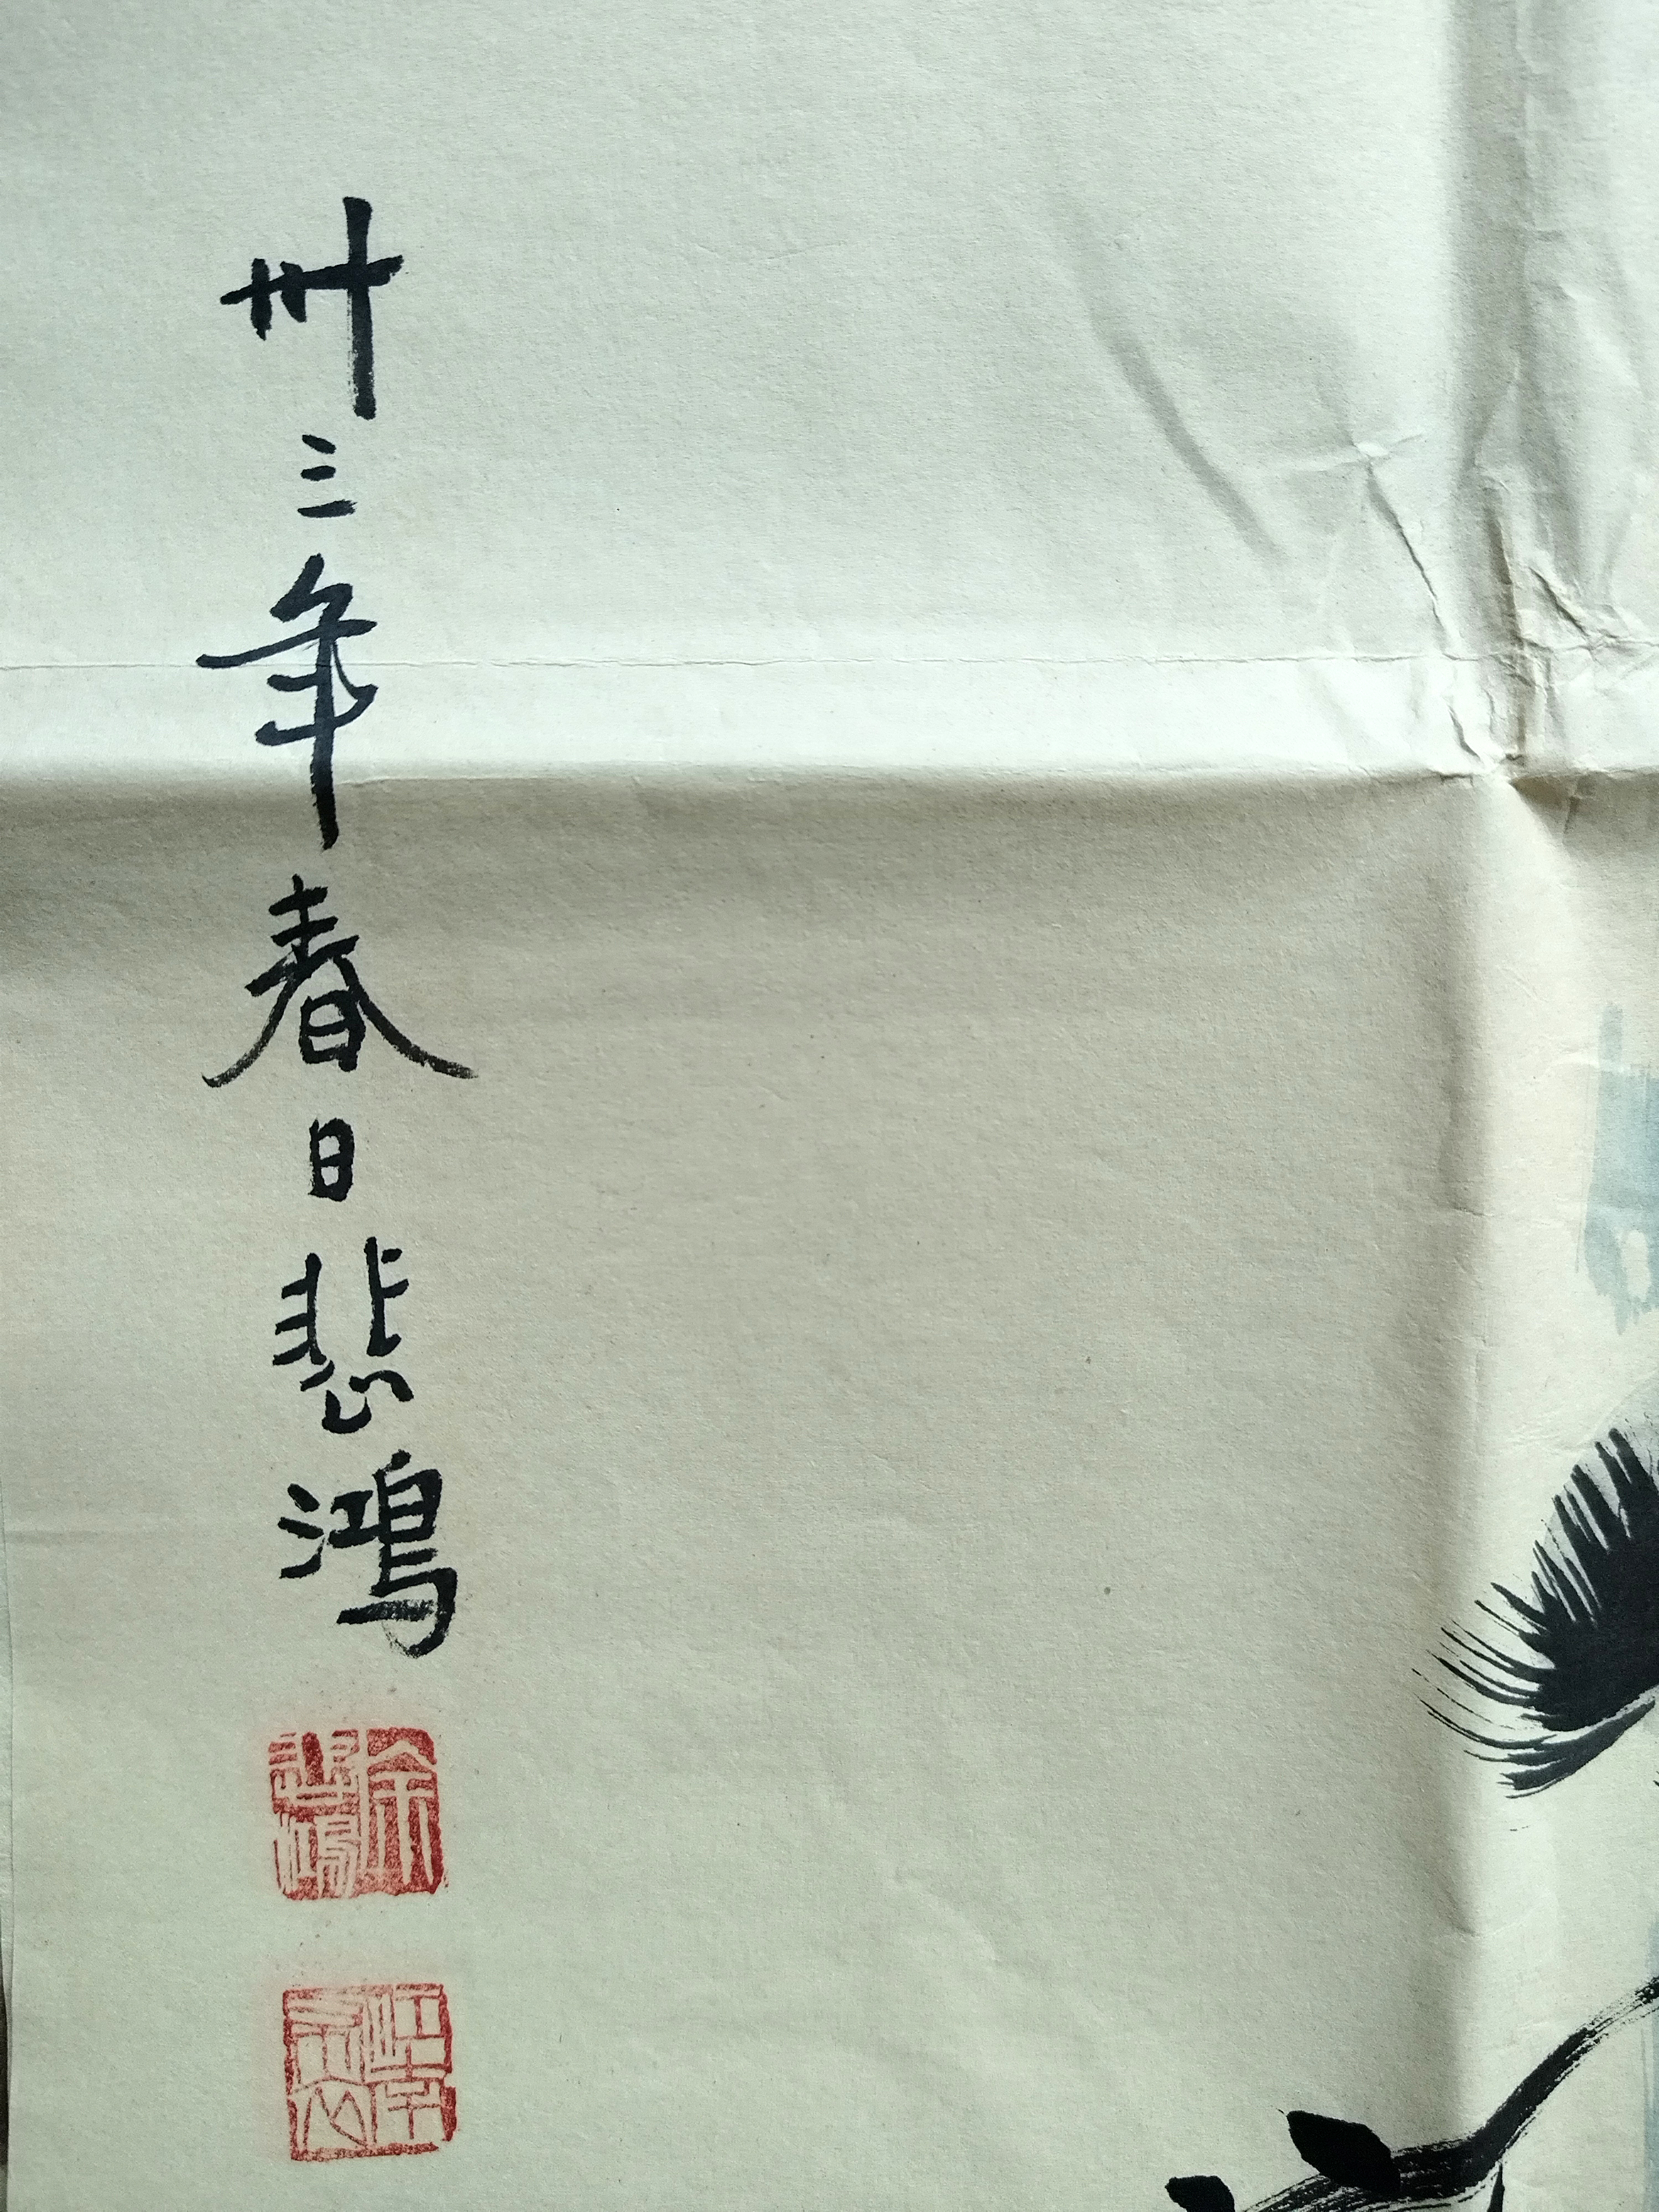 卅三年春日悲鸿
徐悲鸿
江南布衣